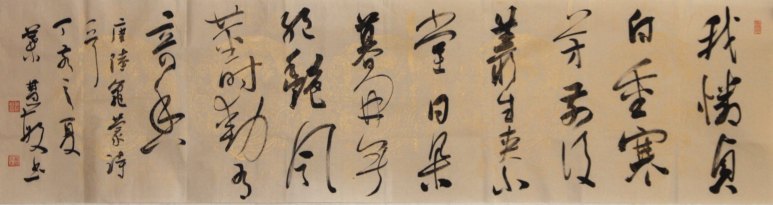 我憐貞
白重寒
芳前後
叢生夾小
堂月朵
暮開無
絕艷風
莖时動有
奇香
唐陸龜蒙詩
一首
丁亥之夏
慧敏书